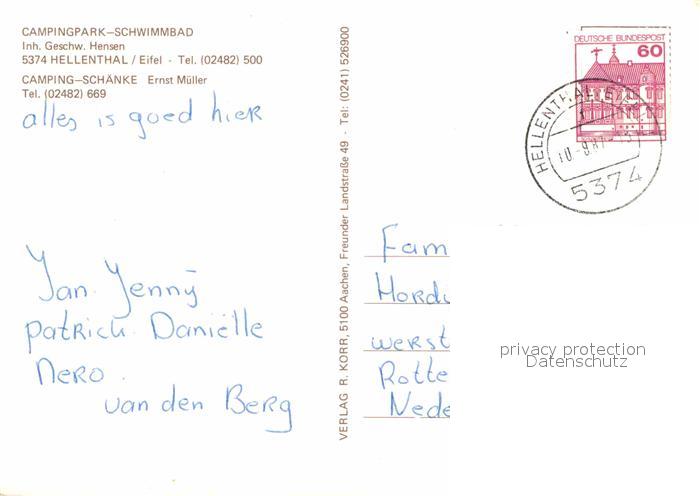 CAMPINGPARK–SCHWIMMBAD
Inh. Geschw. Hensen
5374 HELLENTHAL / Eifel · Tel. (02482) 500
CAMPING–SCHÄNKE Ernst Müller
Tel. (02482) 669
alles is goed hier
Jan. Jenny
patrick Daniëlle
Nero.
van den Berg
VERLAG R. KORR, 5100 Aachen, Freunder Landstraße 49 · Tel: (0241) 526900
DEUTSCHE BUNDESPOST
60
HELLENTHAL, EIFEL
5374
Fam
Hordu
werst
Rotte
Nede
privacy protection
Datenschutz